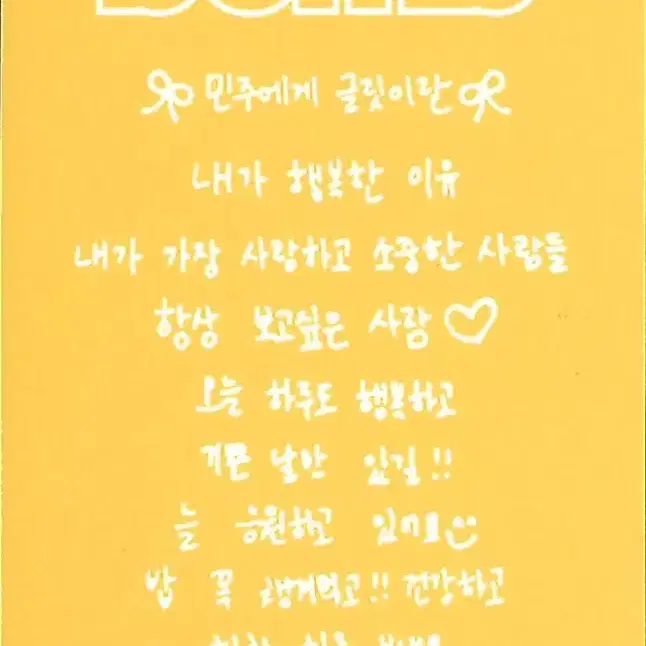 민주에게 글릿이란
내가 행복한 이유
내가 가장 사랑하고 소중한 사람들
항상 보고싶은 사람♡
오늘 하루도 행복하고
기쁜 날만 있길!!
늘 응원하고 있어요
밥 꼭 챙겨먹고!! 건강하고